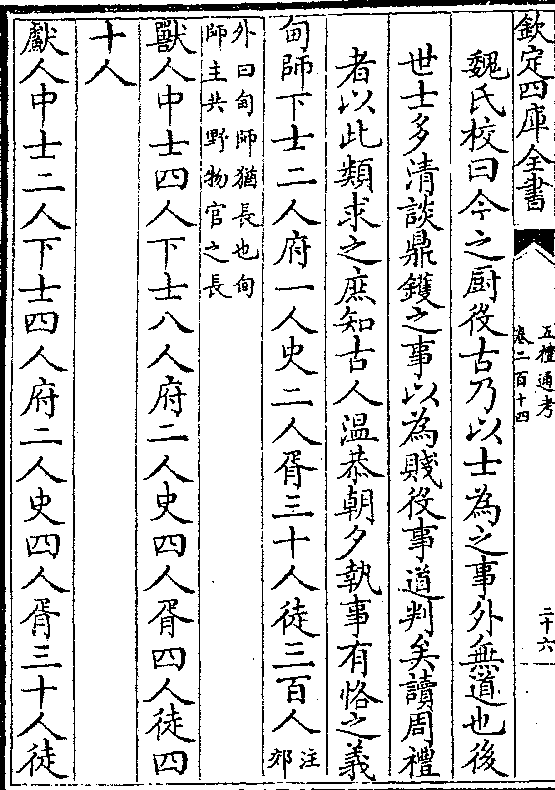 欽定四庫全書
五禮通考
卷二百十四
二十六
魏氏校曰今之厨役古乃以士為之事外無道也後
世士多清談鼎鑊之事以為賤役事道判矣讀周禮
者以此類求之庶知古人溫恭朝夕執事有恪之義
甸師下士二人府一人史二人胥三十人徒三百人注郊
外曰甸師猶長也甸
師主共野物官之長
獸人中士四人下士八人府二人史四人胥四人徒四
十人
䱷人中士二人下士四人府二人史四人胥三十人徒